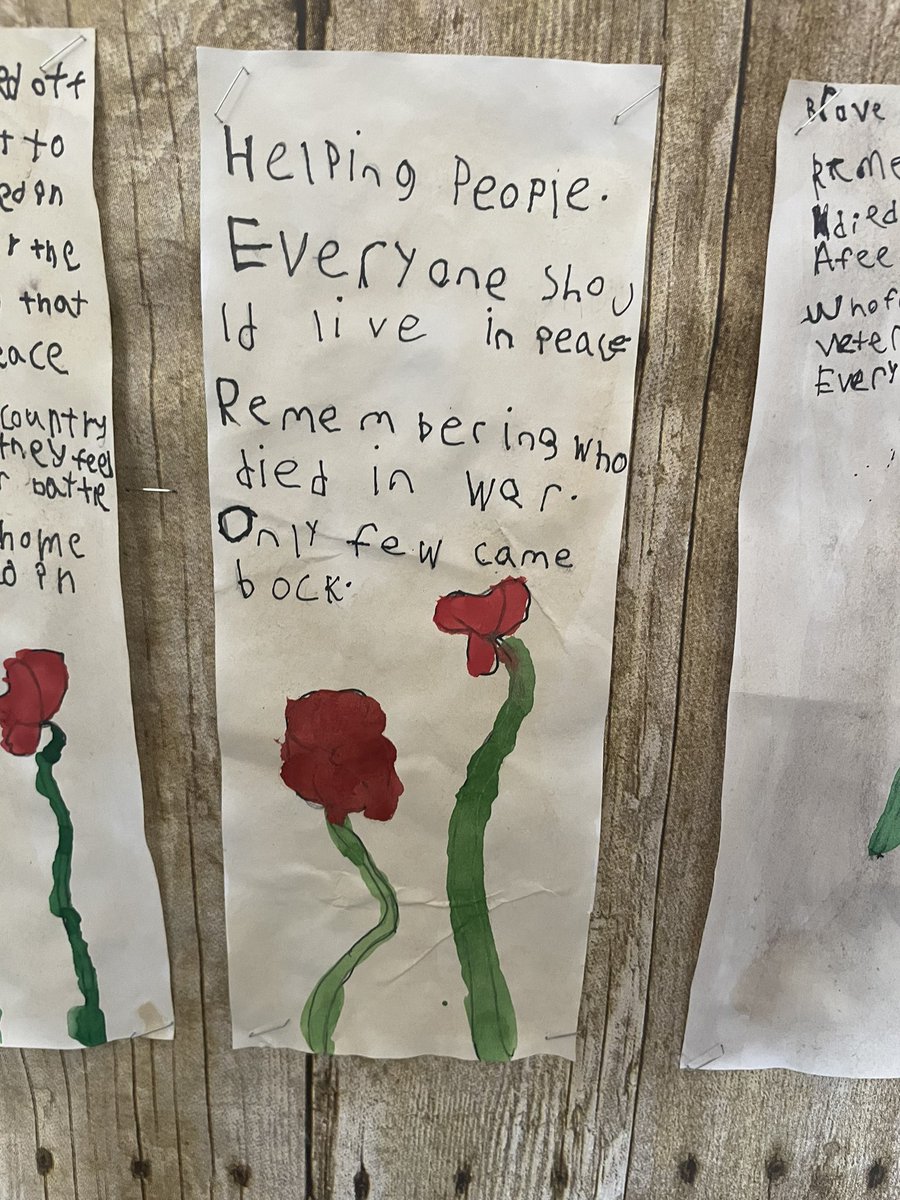 ed off
t to
ed in
r the
that
eace
country
they feel
r battle
home
d in
Helping People.
Everyone shou
ld live in peace
Remembering who
died in war.
Only few came
bock.
Brave
Reme
died
Afee
Whof
veter
Every